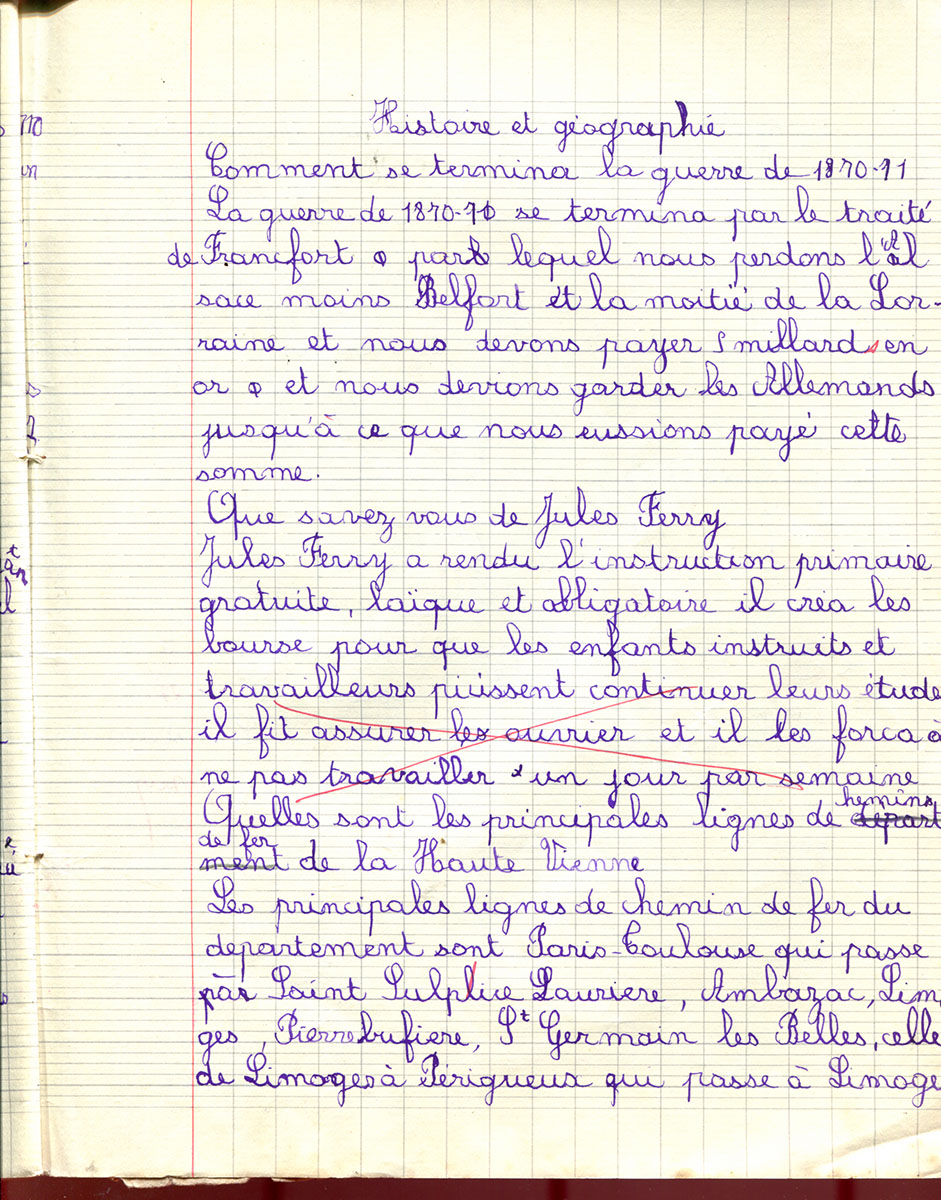 Histoire et géographie
Comment se termina la guerre de 1870-71
La guerre de 1870-71 se termina par le traité
de Francfort par lequel nous perdons l'Al
sace moins Belfort et la moitié de la Lor-
raine et nous devons payer 5 millards en
or et nous devions garder les Allemands
jusqu'à ce que nous eussions payé cette
somme.
Que savez vous de Jules Ferry
Jules Ferry a rendu l'instruction primaire
gratuite, laïque et obligatoire il créa les
bourse pour que les enfants instruits et
travailleurs puissent continuer leurs étude
il fit assurer les ouvrier et il les forca à
ne pas travailler un jour par semaine
Quelles sont les principales lignes de chemins
de fer de la Haute Vienne
Les principales lignes de chemin de fer du
departement sont Paris-Toulouse qui passe
par Saint Sulpice Lauriere, Ambazac, Limo
ges, Pierrebufiere, St Germain les Belles, celle
de Limoges à Périgueux qui passe à Limoge